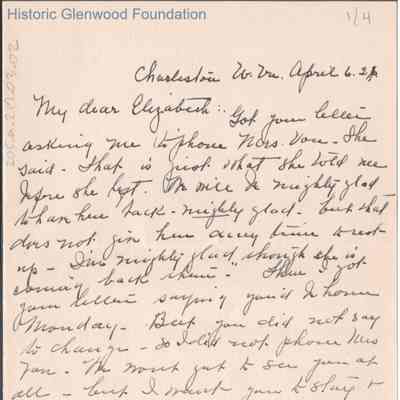 Historic Glenwood Foundation
1/4
Charleston W. Va. April 6. 2
My dear Elizabeth:. Got your letter
asking me to phone Mrs. Van. She
said - That is just what she told me
before she left. We will be mighty glad
to have her back - mighty glad. but that
does not give her any time to rest
up - I'm mighty glad though she is
coming back then." Then I got
your letter saying you'd be home
Monday - But you did not say
to change - So I did not phone Mrs
Van. We won't get to see you at
all - but I want you to stay &